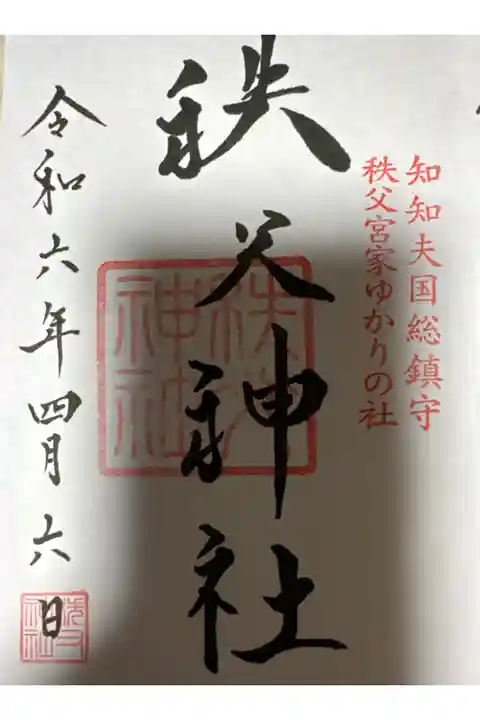 知知夫国総鎮守
秩父宮家ゆかりの社
秩父神社
秩父神社
令和六年四月六日
秩父神社